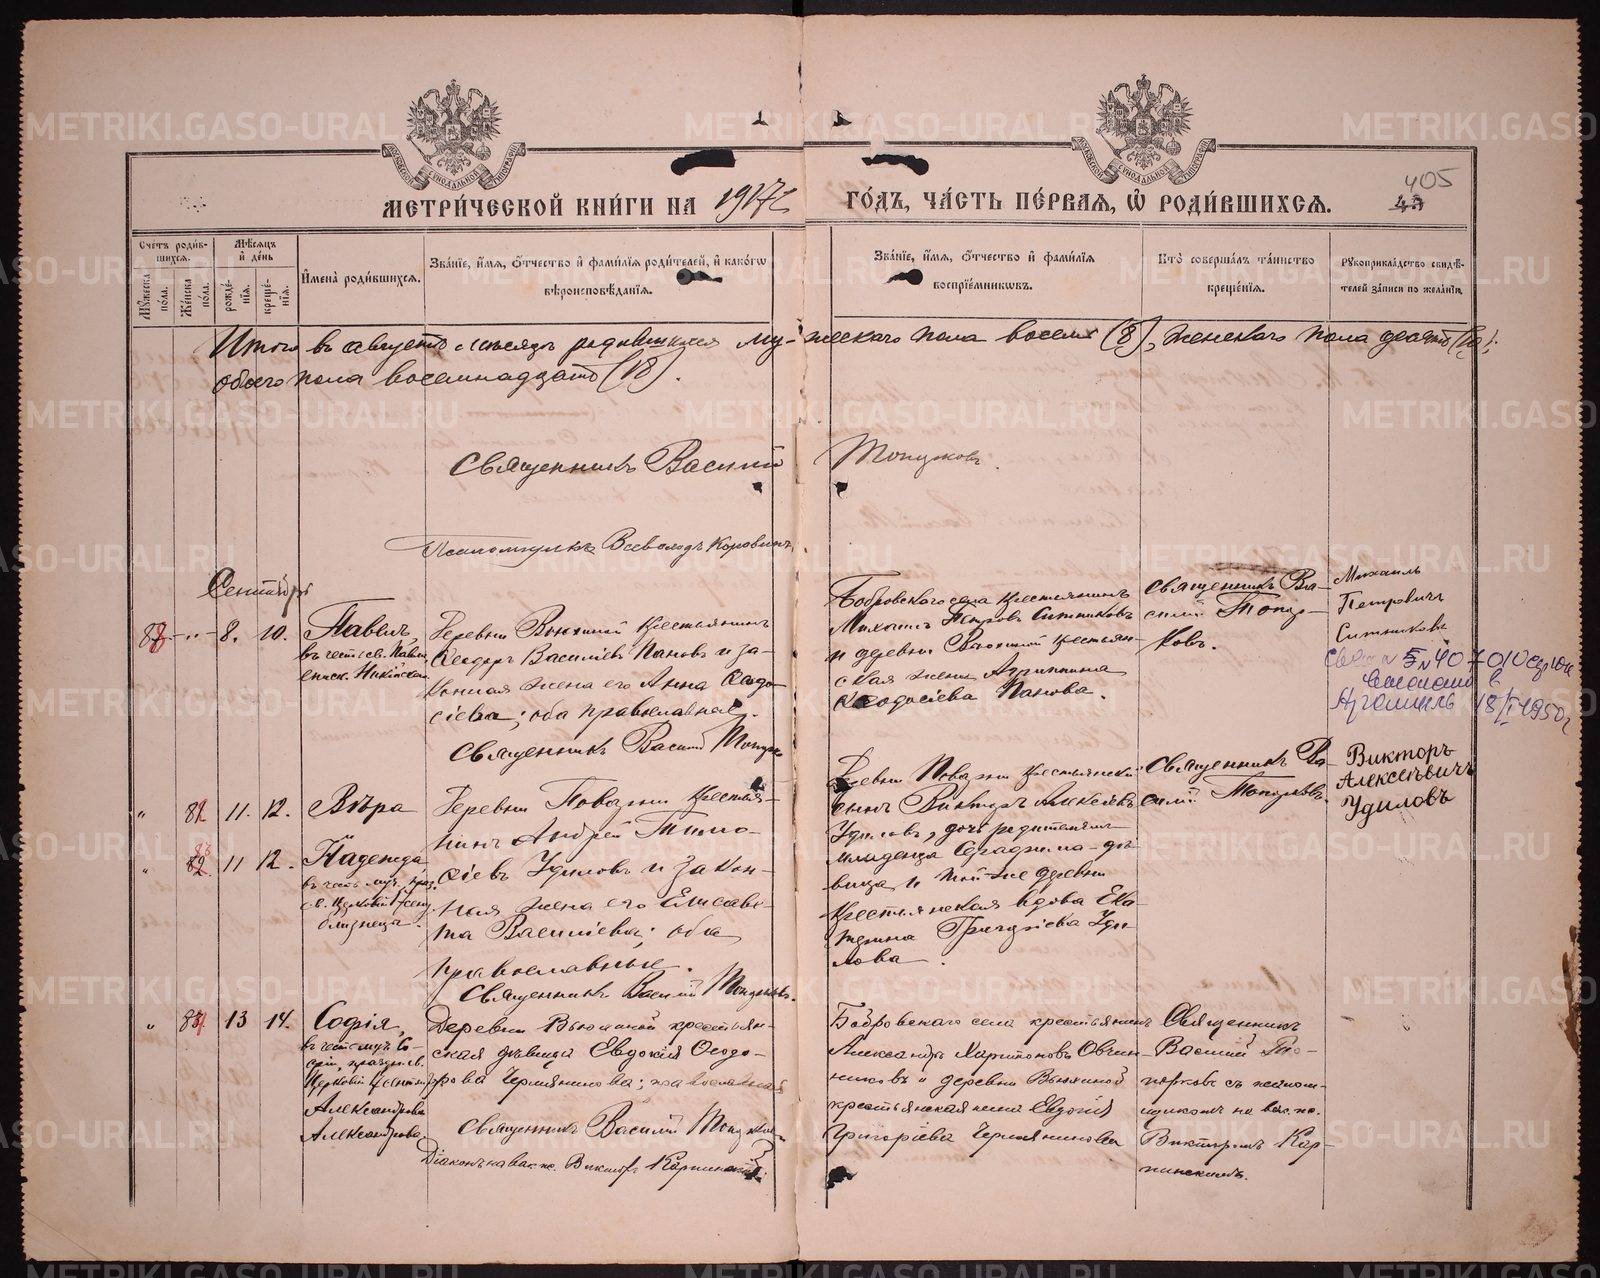 405
МЕТРИ́ЧЕСКОЙ КНИ́ГИ НА 1917 ГО́ДЪ, ЧА́СТЬ ПЕ́РВАЯ, Ѡ РОДИ́ВШИХСЯ.
Сче́тъ роди́вшихся.
Мѣ́сяцъ и де́нь
Му́жеска по́ла.
Же́нска по́ла.
рожде́нія.
креще́нія.
Имена̀ роди́вшихся.
Зва́ніе, и́мя, о́тчество и фами́лія роди́телей, и како́гѡ вѣроисповѣ́данія.
Зва́ніе, и́мя, о́тчество и фами́лія воспріе́мниковъ.
Кто̀ соверша́лъ та́инство креще́нія.
Рукоприкла́дство свидѣ́телей за́писи по жела́нію.
Итого въ августѣ мѣсяцѣ родившихся мужескаго пола восемь (8), женскаго пола десять (10);
обоего пола восемнадцать (18).
Священникъ Василій Топорковъ.
Псаломщикъ Всеволодъ Коровинъ
Сентябрь
8. 10.
Павелъ,
въ честь св. Павла,
еписк. Никейскаго
Деревни Вьюхиной крестьянинъ
Ѳеодоръ Василіевъ Пановъ и за-
конная жена его Анна Ѳеодо-
сіева; оба православные.
Священникъ Василій Топорков
Бобровскаго села крестьянинъ
Михаилъ Петровъ Ситниковъ
и деревни Вьюхиной крестьян-
ская жена Агриппина
Ѳеодосіева Панова.
Священникъ Ва-
силій Топор-
ковъ.
Михаилъ
Петровичъ
Ситниковъ
18/I 1950 г
11. 12.
Вѣра
Деревни Поварни крестья-
нинъ Андрей Тимо-
ѳіевъ Удиловъ и закон-
ная жена его Елисаве-
та Василіева; оба
православные.
Священникъ Василій Топорковъ.
83
82
11 12.
Надежда
близнецы.
Деревни Поварни крестьянскій
сынъ Викторъ Алексѣевъ
Удиловъ, дочь родителямъ
младенца Серафима дѣ-
вица, и той-же деревни
крестьянская вдова Ека-
терина Григоріева Уди-
лова.
Священникъ Ва-
силій Топорковъ.
Викторъ
Алексѣевичъ
Удиловъ
13 14.
Софія,
въ честь муч. Со-
фіи, праздн. св.
Церковію 17 сентября
Александрова
Александрова.
Деревни Вьюхиной крестьян-
ская дѣвица Евдокія Ѳеодо-
рова Чермянинова; православная
Священникъ Василій Топорков
Діаконъ на вак. пс. Викторъ Карпинскій.
Бобровскаго села крестьянинъ
Александръ Харитоновъ Овчин-
никовъ и деревни Вьюхиной
крестьянская жена Евдокія
Григоріева Чермянинова
Священникъ
Василій То-
порковъ съ псалом-
щикомъ на вак. пс.
Викторомъ Кар-
пинскимъ.